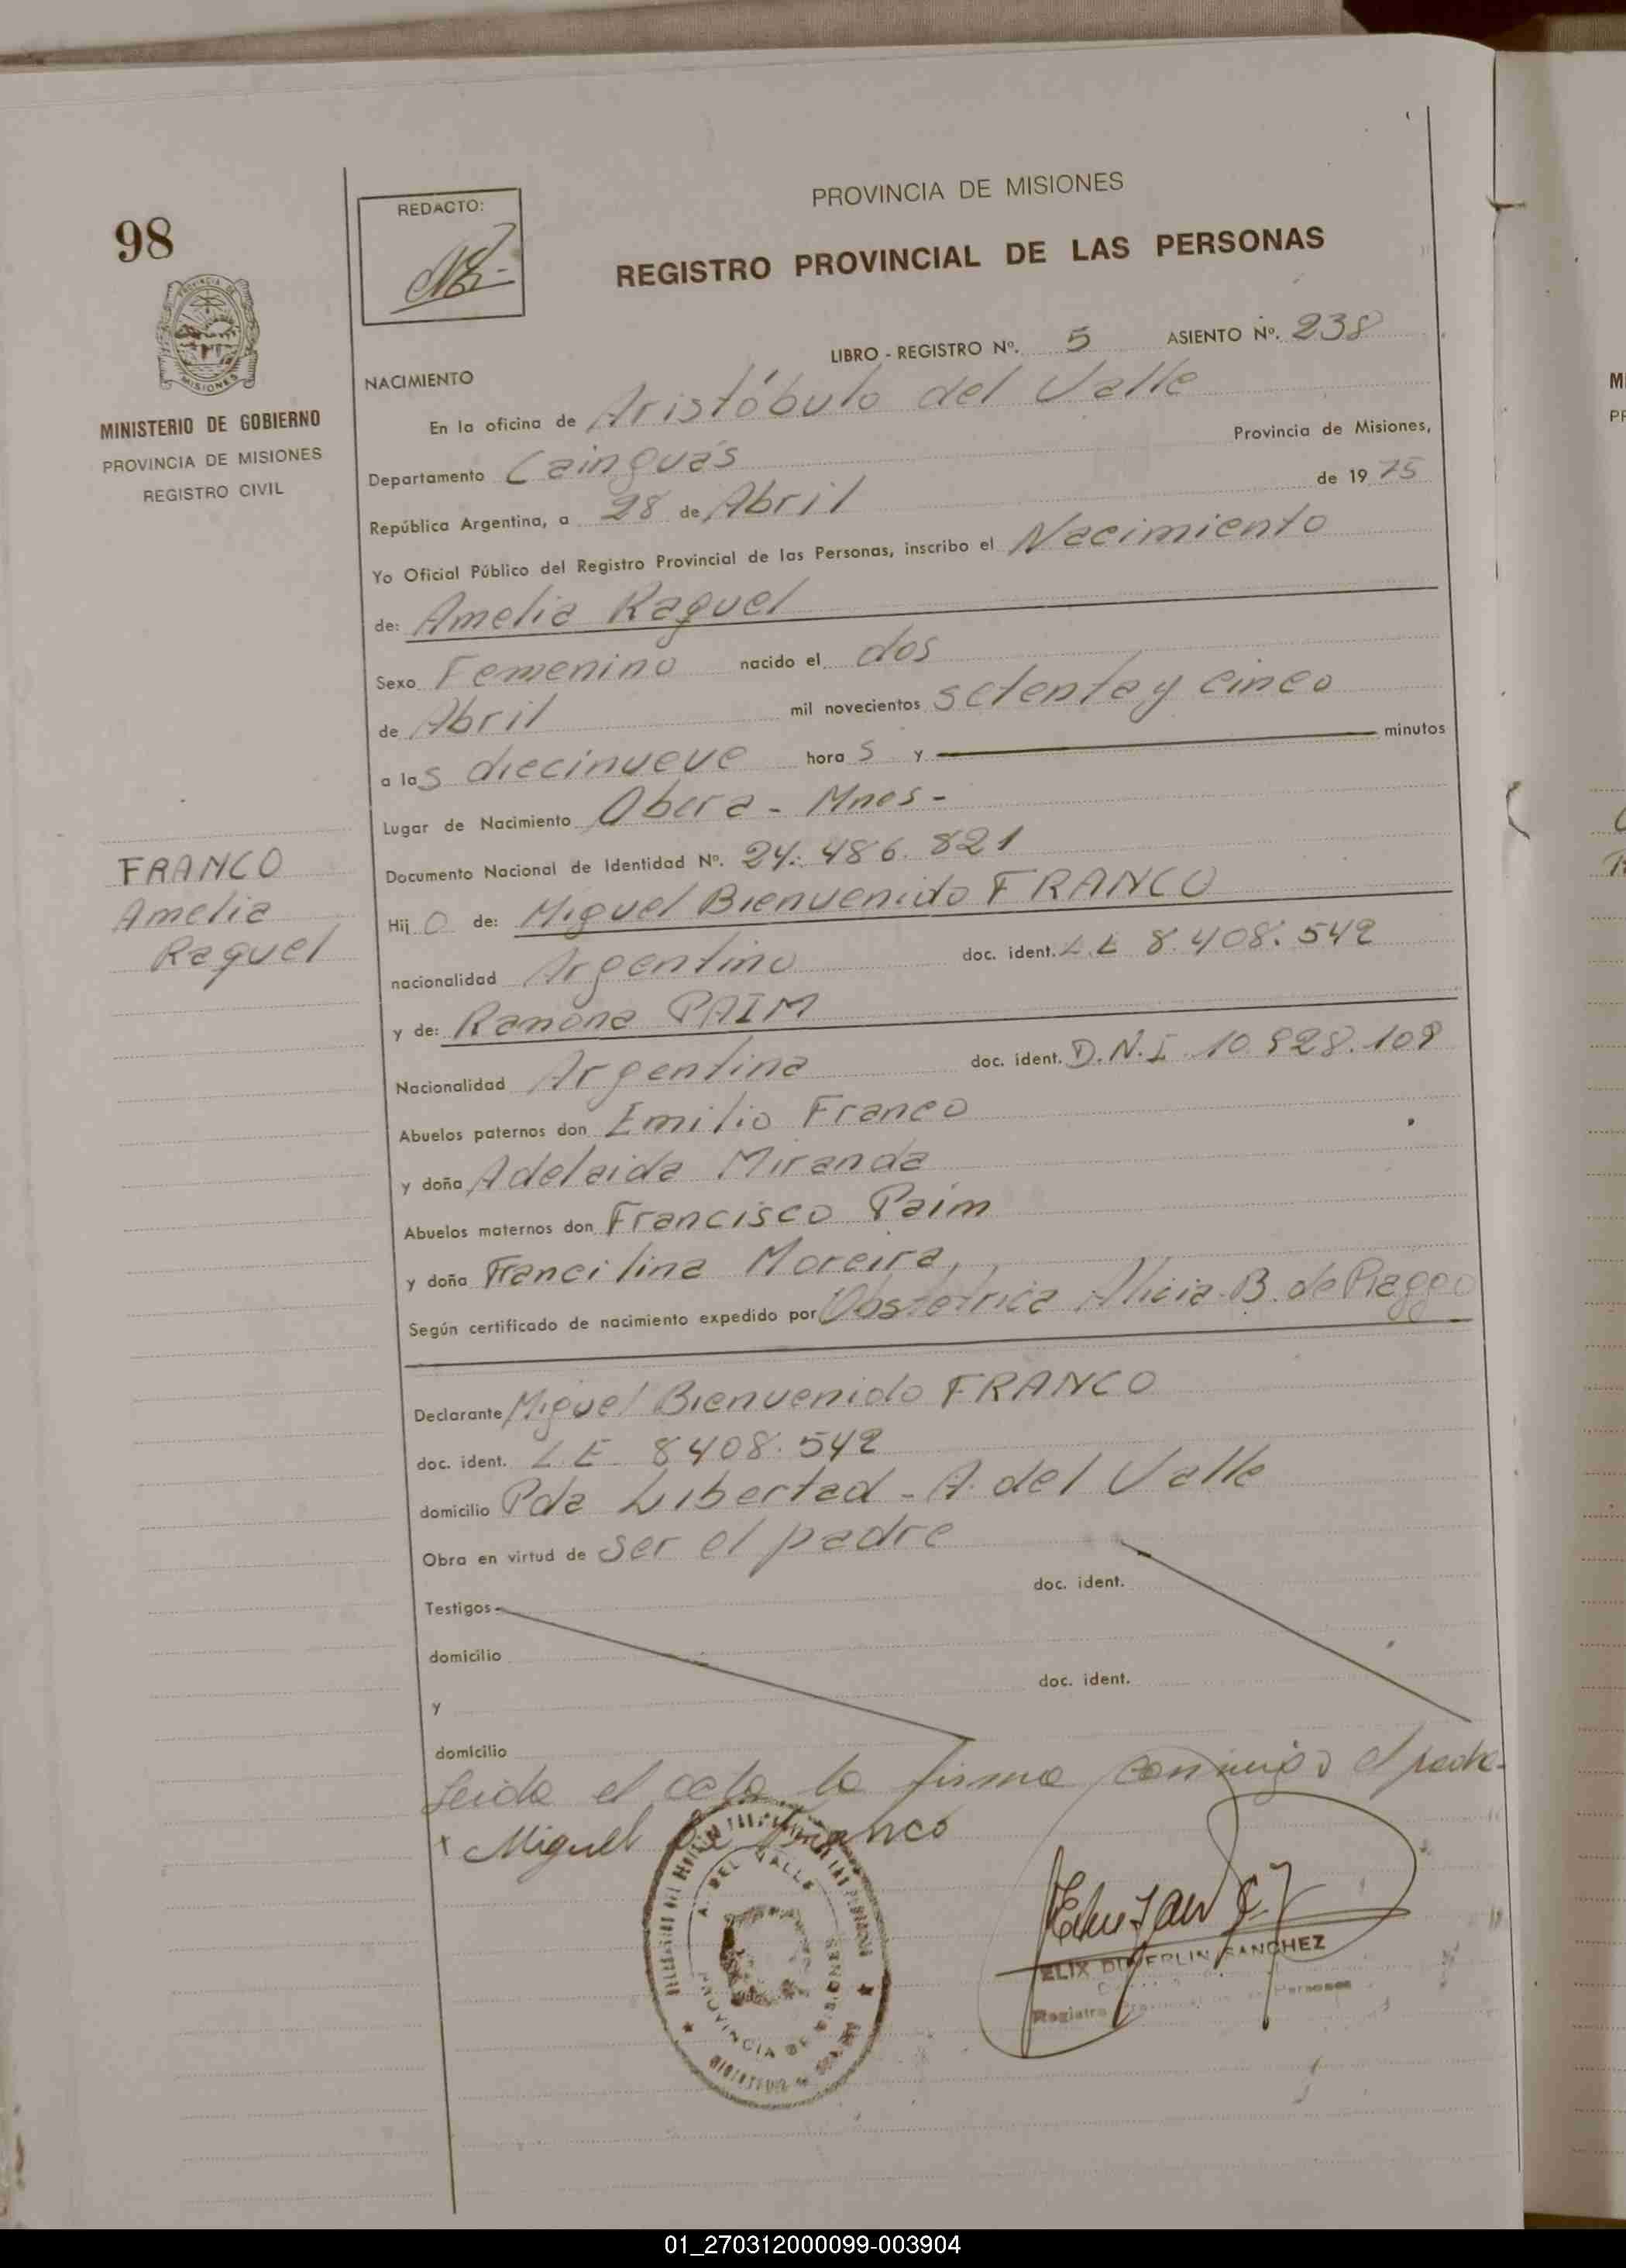 98
PROVINCIA DE MISIONES
MINISTERIO DE GOBIERNO
PROVINCIA DE MISIONES
REGISTRO CIVIL
REDACTO:
PROVINCIA DE MISIONES
REGISTRO PROVINCIAL DE LAS PERSONAS
LIBRO - REGISTRO Nº. 5 ASIENTO Nº. 238
NACIMIENTO
En la oficina de Aristóbulo del Valle
Departamento Cainguás Provincia de Misiones,
República Argentina, a 28 de Abril de 1975
Yo Oficial Público del Registro Provincial de las Personas, inscribo el Nacimiento
de: Amelia Raquel
Sexo Femenino nacido el dos
de Abril mil novecientos setenta y cinco
a las diecinueve horas y minutos
Lugar de Nacimiento Obera - Mnes -
Documento Nacional de Identidad Nº. 24. 486. 821
FRANCO
Amelia
Raquel
Hijo de: Miguel Bienvenido FRANCO
nacionalidad Argentino doc. ident. L.E 8.408.542
y de: Ramona PAIM
Nacionalidad Argentina doc. ident. D.N.I 10.928.109
Abuelos paternos don Emilio Franco
y doña Adelaida Miranda
Abuelos maternos don Francisco Paim
y doña Francilina Moreira,
Según certificado de nacimiento expedido por Obstetrica Alicia B. de Piaggo
Declarante Miguel Bienvenido FRANCO
doc. ident. L E 8408.542
domicilio Pda Libertad - A. del Valle
Obra en virtud de ser el padre
doc. ident.
Testigos
domicilio
doc. ident.
y
domicilio
Leida el acta la firma conmigo el padre.
Miguel Be Franco
A. DEL VALLE
PROVINCIA DE MISIONES
SANCHEZ
Registro
Personas
01_270312000099-003904